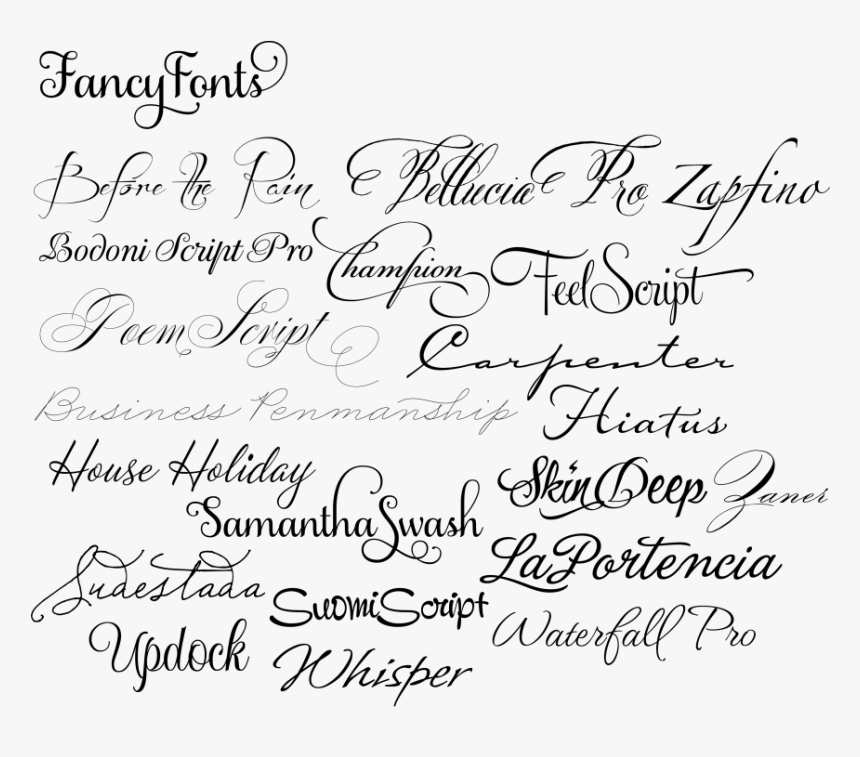 FancyFonts
Before the Rain Bellucia Pro Zapfino
Bodoni Script Pro Champion FeelScript
Poem Script Carpenter
Business Penmanship Hiatus
House Holiday SkinDeep Zaner
SamanthaSwash
Sudestada LaPortencia
SuomiScript Waterfall Pro
Updock Whisper